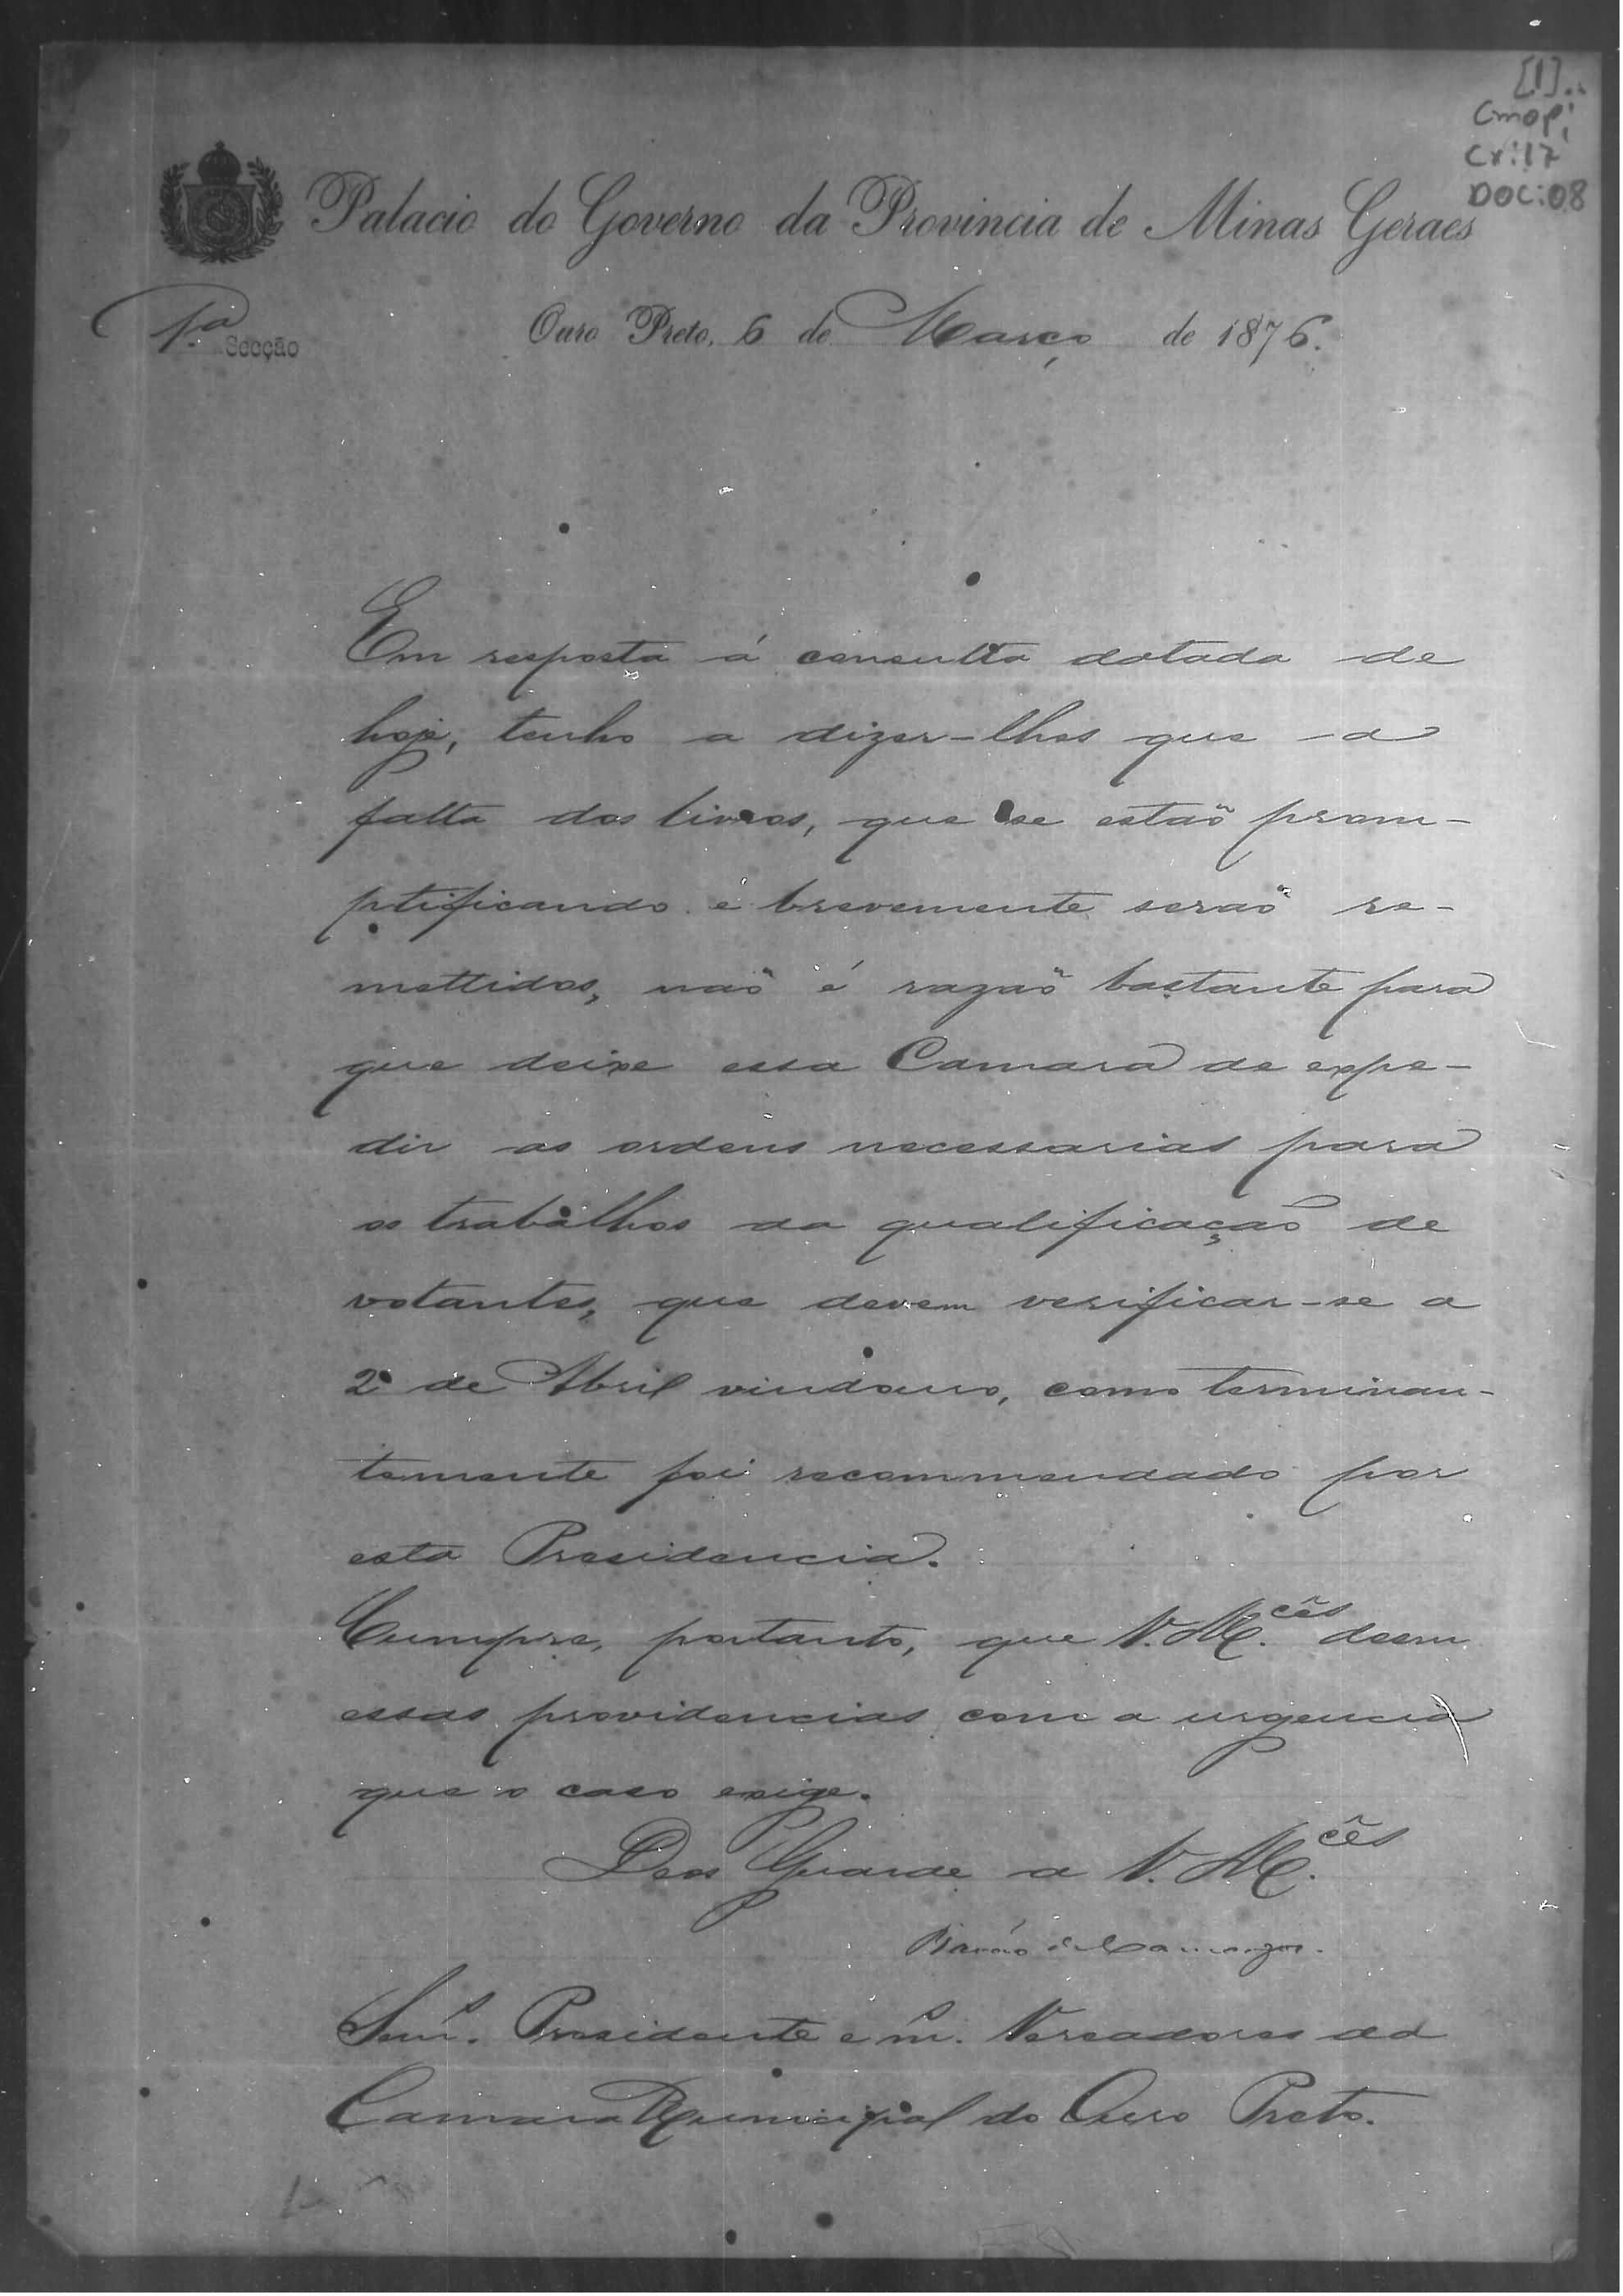 [1]..
Cmop;
Cx:17
DOC:08
Palacio do Governo da Provincia de Minas Geraes
1.ª Secção
Ouro Preto, 6 de Março de 1876.
Em resposta á consulta datada de
hoje, tenho a dizer-lhes que a
falta dos livros, que se estaõ prom-
ptificando e brevemente seraõ re-
mettidos, naõ é razaõ bastante para
que deixe essa Camara de expe-
dir as ordens necessarias para
os trabalhos da qualificaçaõ de
votantes, que devem verificar-se a
2 de Abril vindouro, como terminan-
temente foi recommendado por
esta Presidencia.
Cumpre, portanto, que V. M.cês deem
essas providencias com a urgencia
que o caso exige.
Deos Guarde a V. M.cês
Barão de Camargos.
Snr.s Presidente e m.s Vereadores da
Camara Municipal do Ouro Preto.